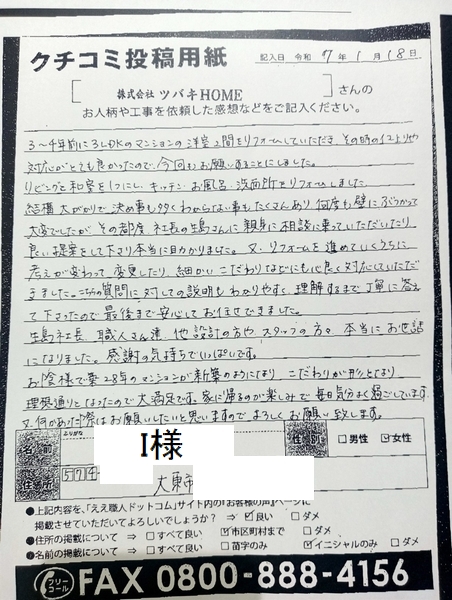 クチコミ投稿用紙
記入日 令和 7年 1月 18日
株式会社 ツバキHOME さんの
お人柄や工事を依頼した感想などをご記入ください。
3〜4年前に3LDKのマンションの洋室2間をリフォームしていただき、その時の仕上りや
対応がとても良かったので、今回もお願いすることにしました。
リビングと和室を1つにし、キッチン・お風呂・洗面所をリフォームしました
結構大がかりで決め事も多くわからない事もたくさんあり、何度も壁にぶつかって
大変でしたが、その都度 社長の生島さんに親身に相談に乗っていただいたり
良い提案をして下さり本当に助かりました。又、リフォームを進めていくうちに
考えが変わって変更したり、細かいこだわりなどにも心良く対応していただ
きました。こちらの質問に対しての説明もわかりやすく、理解するまで丁寧に答え
て下さったので最後まで安心してお任せできました。
生島社長、職人さん達、他設計の方や、スタッフの方々、本当にお世話
になりました。感謝の気持ちでいっぱいです。
お陰様で築28年のマンションが新築のようになり、こだわりが形となり
理想通りとなったので大満足です。家に帰るのが楽しみで毎日気分よく過ごしています
又何かあった際はお願いしたいと思いますので、よろしくお願い致します。
ふりがな
名前
I様
性別
□男性 ☑女性
ご住所
574
大東市
●上記内容を、「ええ職人ドットコム」サイト内の「お客様の声」ページに
掲載させていただいてよろしいでしょうか？ ⇒ ☑良い □ダメ
●住所の掲載について ⇒ □すべて良い ☑市区町村まで □ダメ
●名前の掲載について ⇒ □すべて良い □苗字のみ ☑イニシャルのみ □ダメ
フリーコール FAX 0800-888-4156